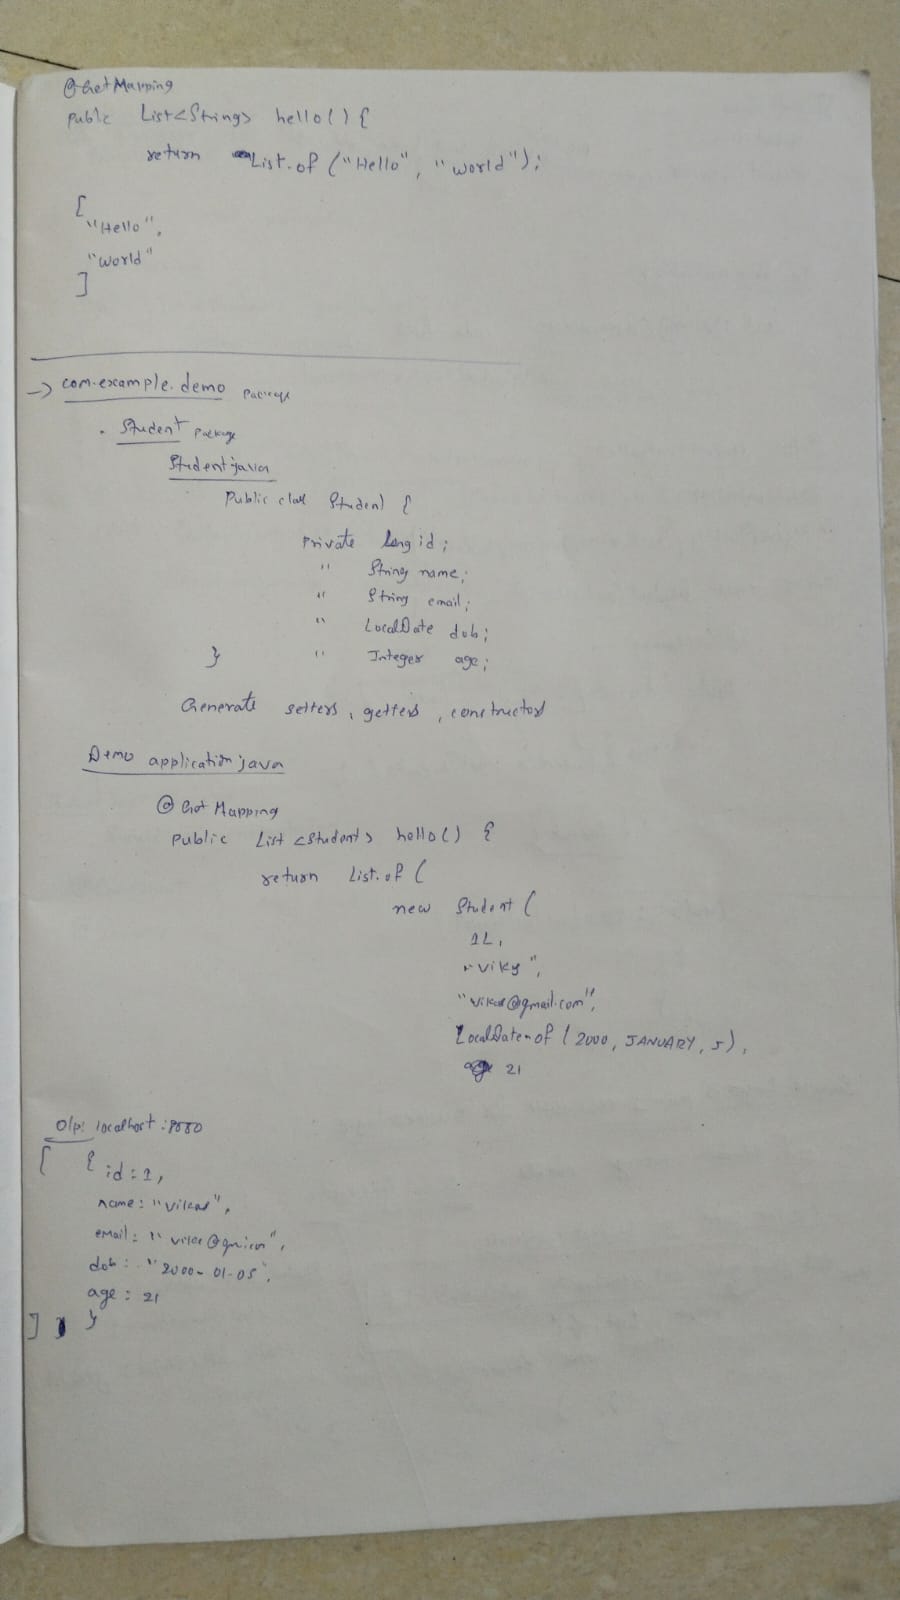 @GetMapping
public List<String> hello() {
return List.of ("Hello", "world");
[
"Hello",
"world"
]
-> com.example.demo package
. Student package
Student.java
Public class Student {
Private long id;
" String name;
" String email;
" LocalDate dob;
} " Integer age;
Generate setters, getters, constructors
Demo application.java
@Get Mapping
public List <Student> hello() {
return List.of (
new Student (
1L,
"vikas",
"vikas@gmail.com",
LocalDate.of (2000, JANUARY, 5),
21
O/p: localhost:8080
[ { id:1,
name: "vikas",
email:
dob: "2000-01-05",
age: 21
] }